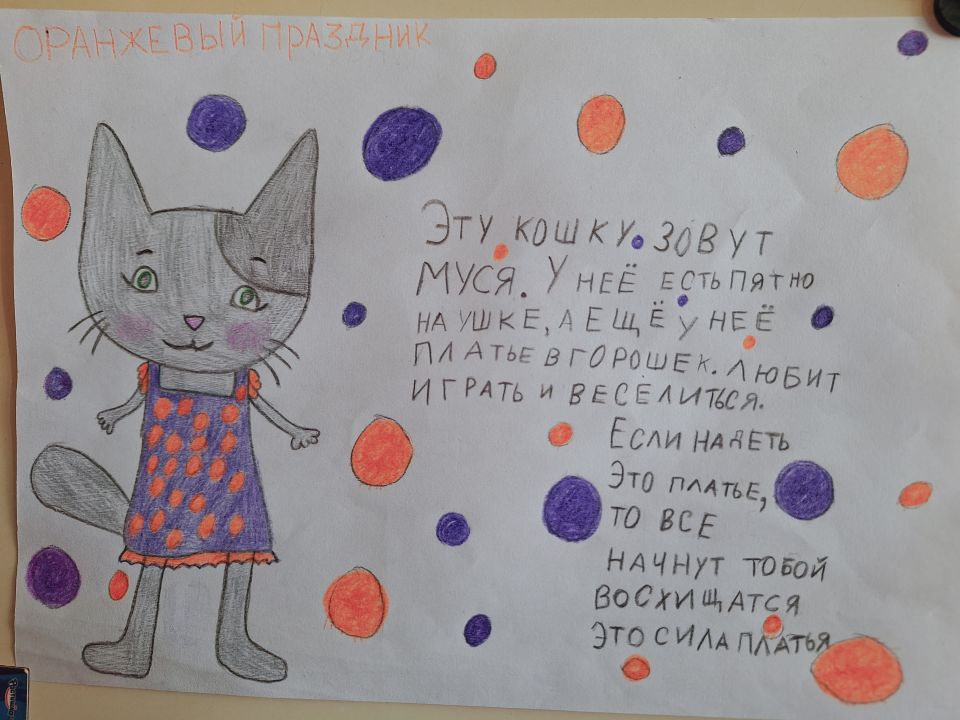 ОРАНЖЕВЫЙ ПРАЗДНИК
ЭТУ КОШКУ ЗОВУТ
МУСЯ. У НЕЁ ЕСТЬ ПЯТНО
НА УШКЕ, А ЕЩЁ У НЕЁ
ПЛАТЬЕ В ГОРОШЕК. ЛЮБИТ
ИГРАТЬ И ВЕСЕЛИТЬСЯ.
ЕСЛИ НАДЕТЬ
ЭТО ПЛАТЬЕ,
ТО ВСЕ
НАЧНУТ ТОБОЙ
ВОСХИЩАТСЯ
ЭТО СИЛА ПЛАТЬЯ